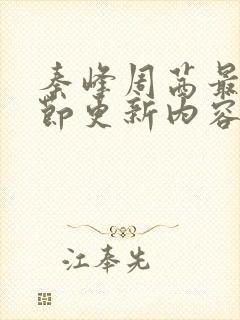 秦峰周茜最
节更新内容
江奉先